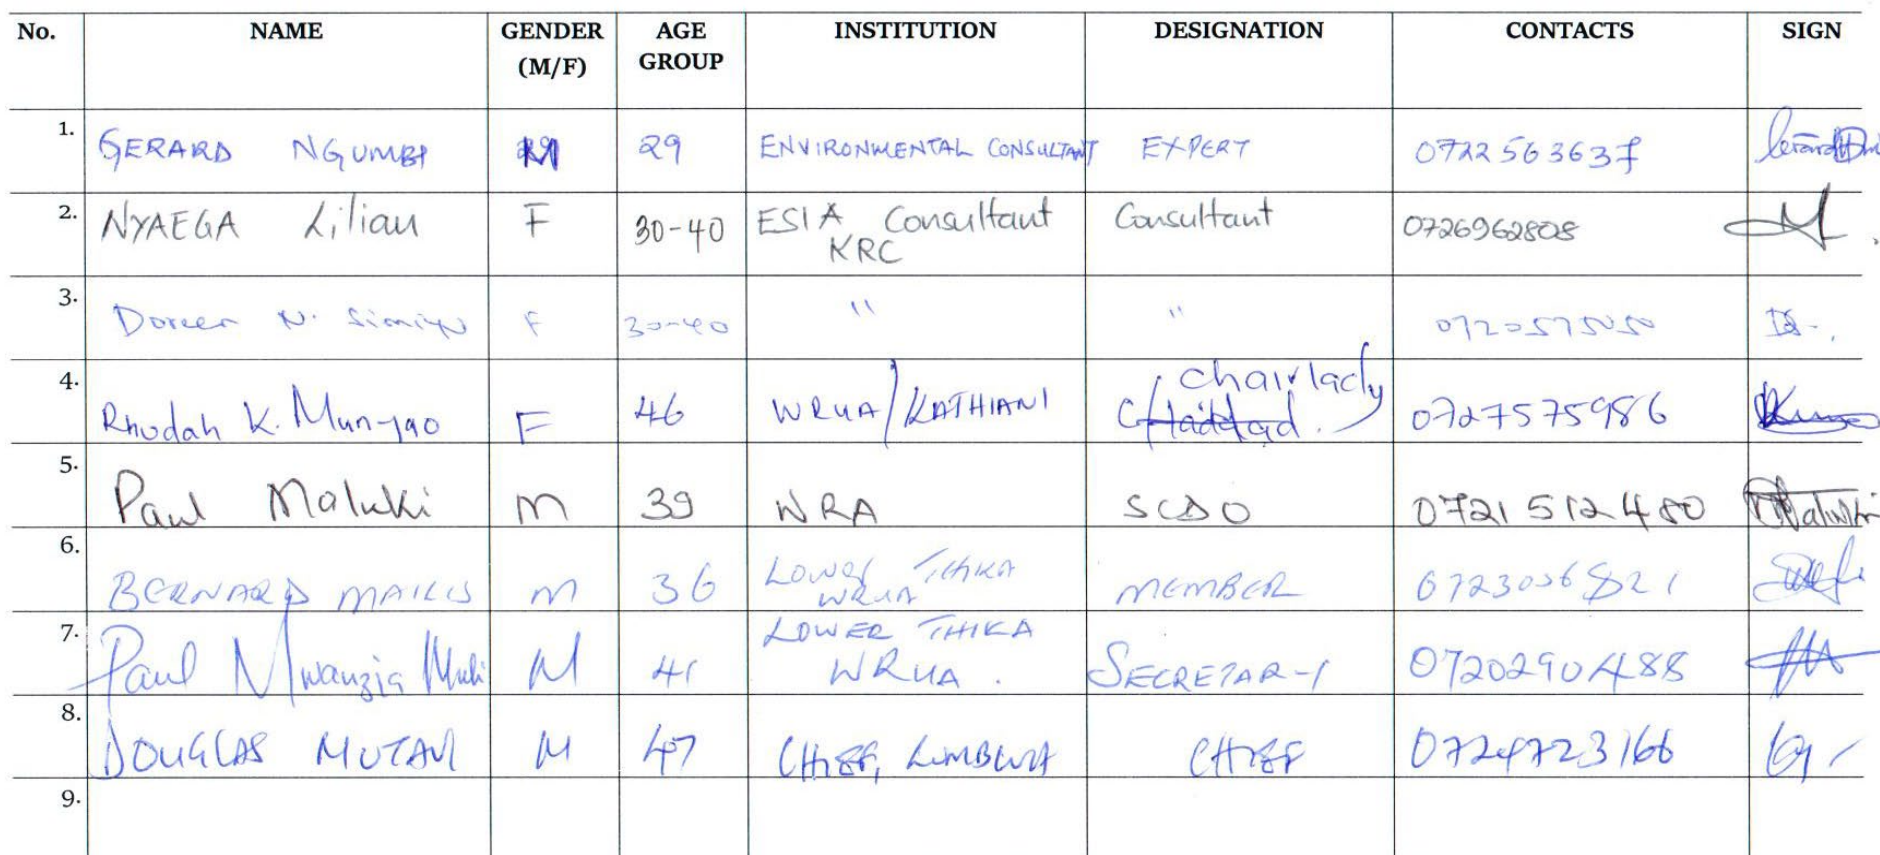 No. NAME GENDER (M/F) AGE GROUP INSTITUTION DESIGNATION CONTACTS SIGN
1. GERARD NGUMBI M 29 ENVIRONMENTAL CONSULTANT EXPERT 0722563637
2. NYAEGA Lilian F 30-40 ESIA Consultant KRC Consultant 0726962808
3. Doreen N. Simiyu F 30-40 " " 0720575050
4. Rhodah K. Munyao F 46 WRUA/KATHIANI Chairlady 0727575986
5. Paul Maluki M 39 WRA SCDO 0721512480
6. BERNARD M 36 LOWER THIKA WRUA MEMBER
7. Paul Mwanzia Muli M 41 LOWER THIKA WRUA. SECRETARY 0720290488
8. DOUGLAS MUTAVI M 47 CHIEF, CHIEF 0724723166
9.